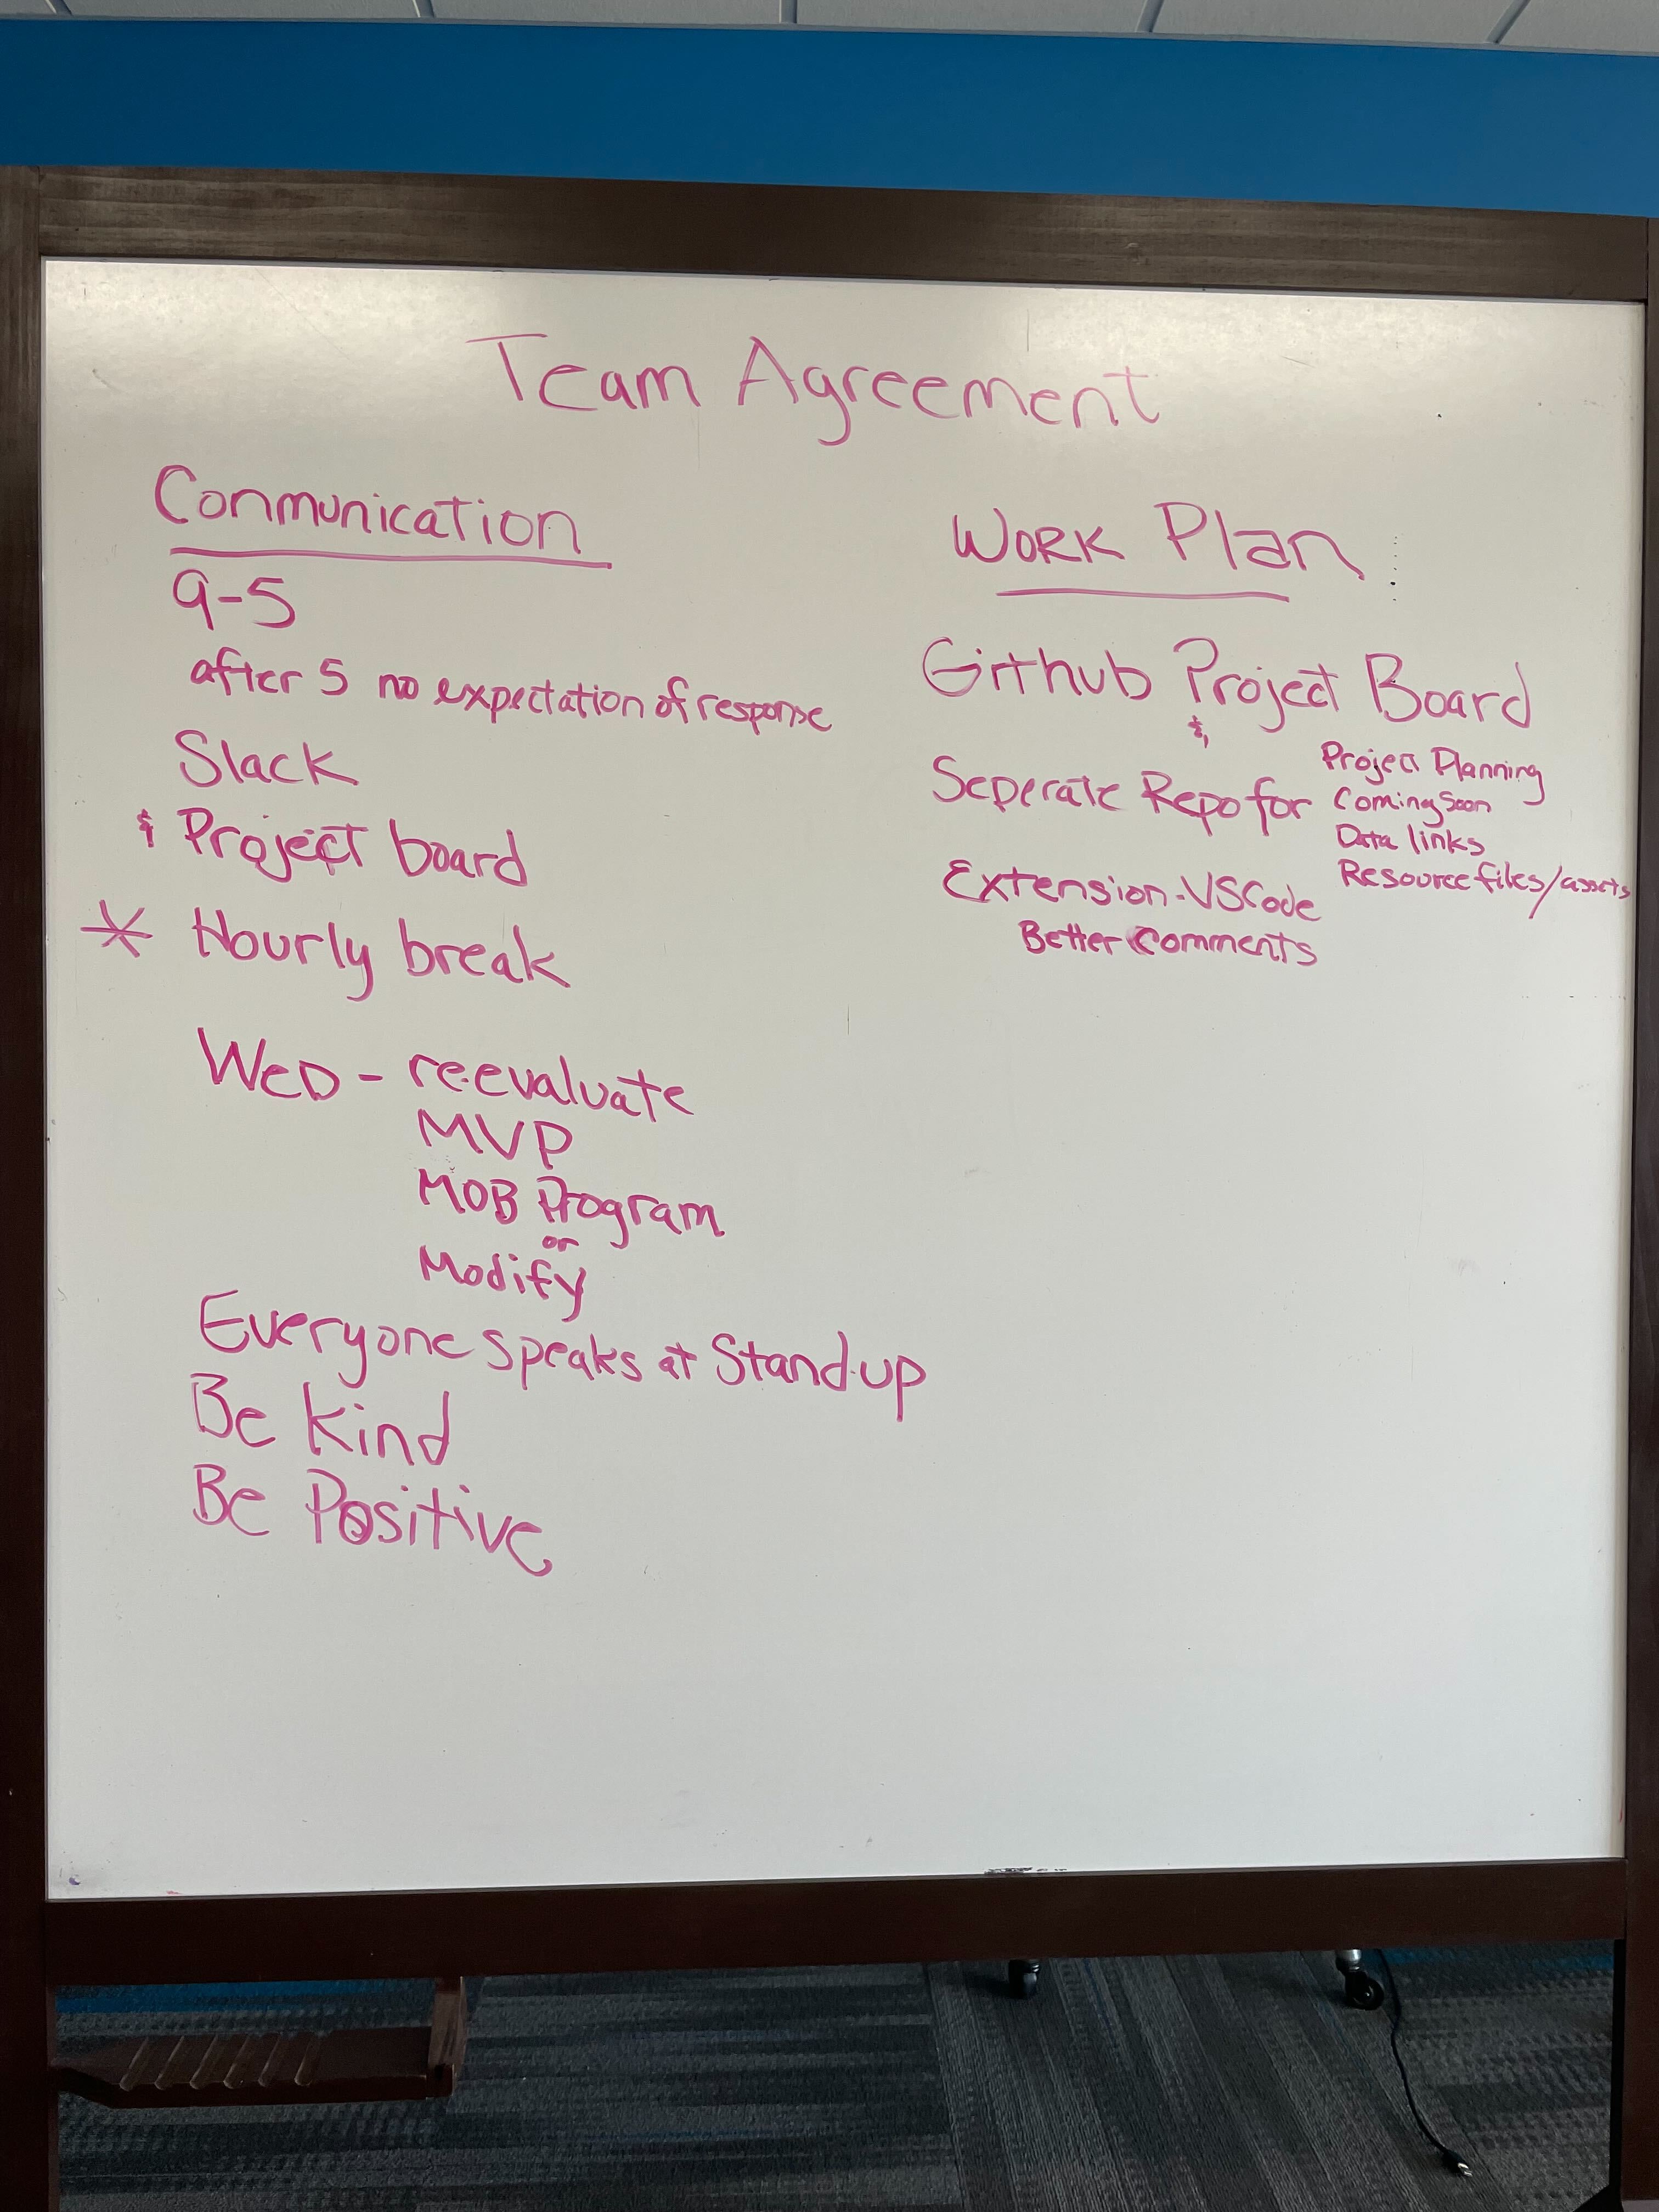 Team Agreement
Conmunication
9-5
after 5 no expectation of response
Slack
& Project board
* Hourly break
WED - re-evaluate
MVP
MOB Program
or
Modify
Everyone speaks at Stand-up
Be Kind
Be Positive
Work Plan
Github Project Board
&
Seperate Repo for
Project Planning
Coming Soon
Data links
Resource files/assets
Extension-VSCode
Better Comments